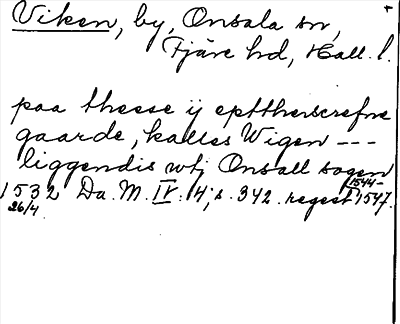 Viken, by, Onsala sn,
Fjäre hd, Hall. l.
paa thesse ij epttherscrefne
gaarde, kalles Wigen ---
liggendis wtj Onsall sogen
1532 Da. M. IV. 4; s. 342. regest 1544-1547.
26/4